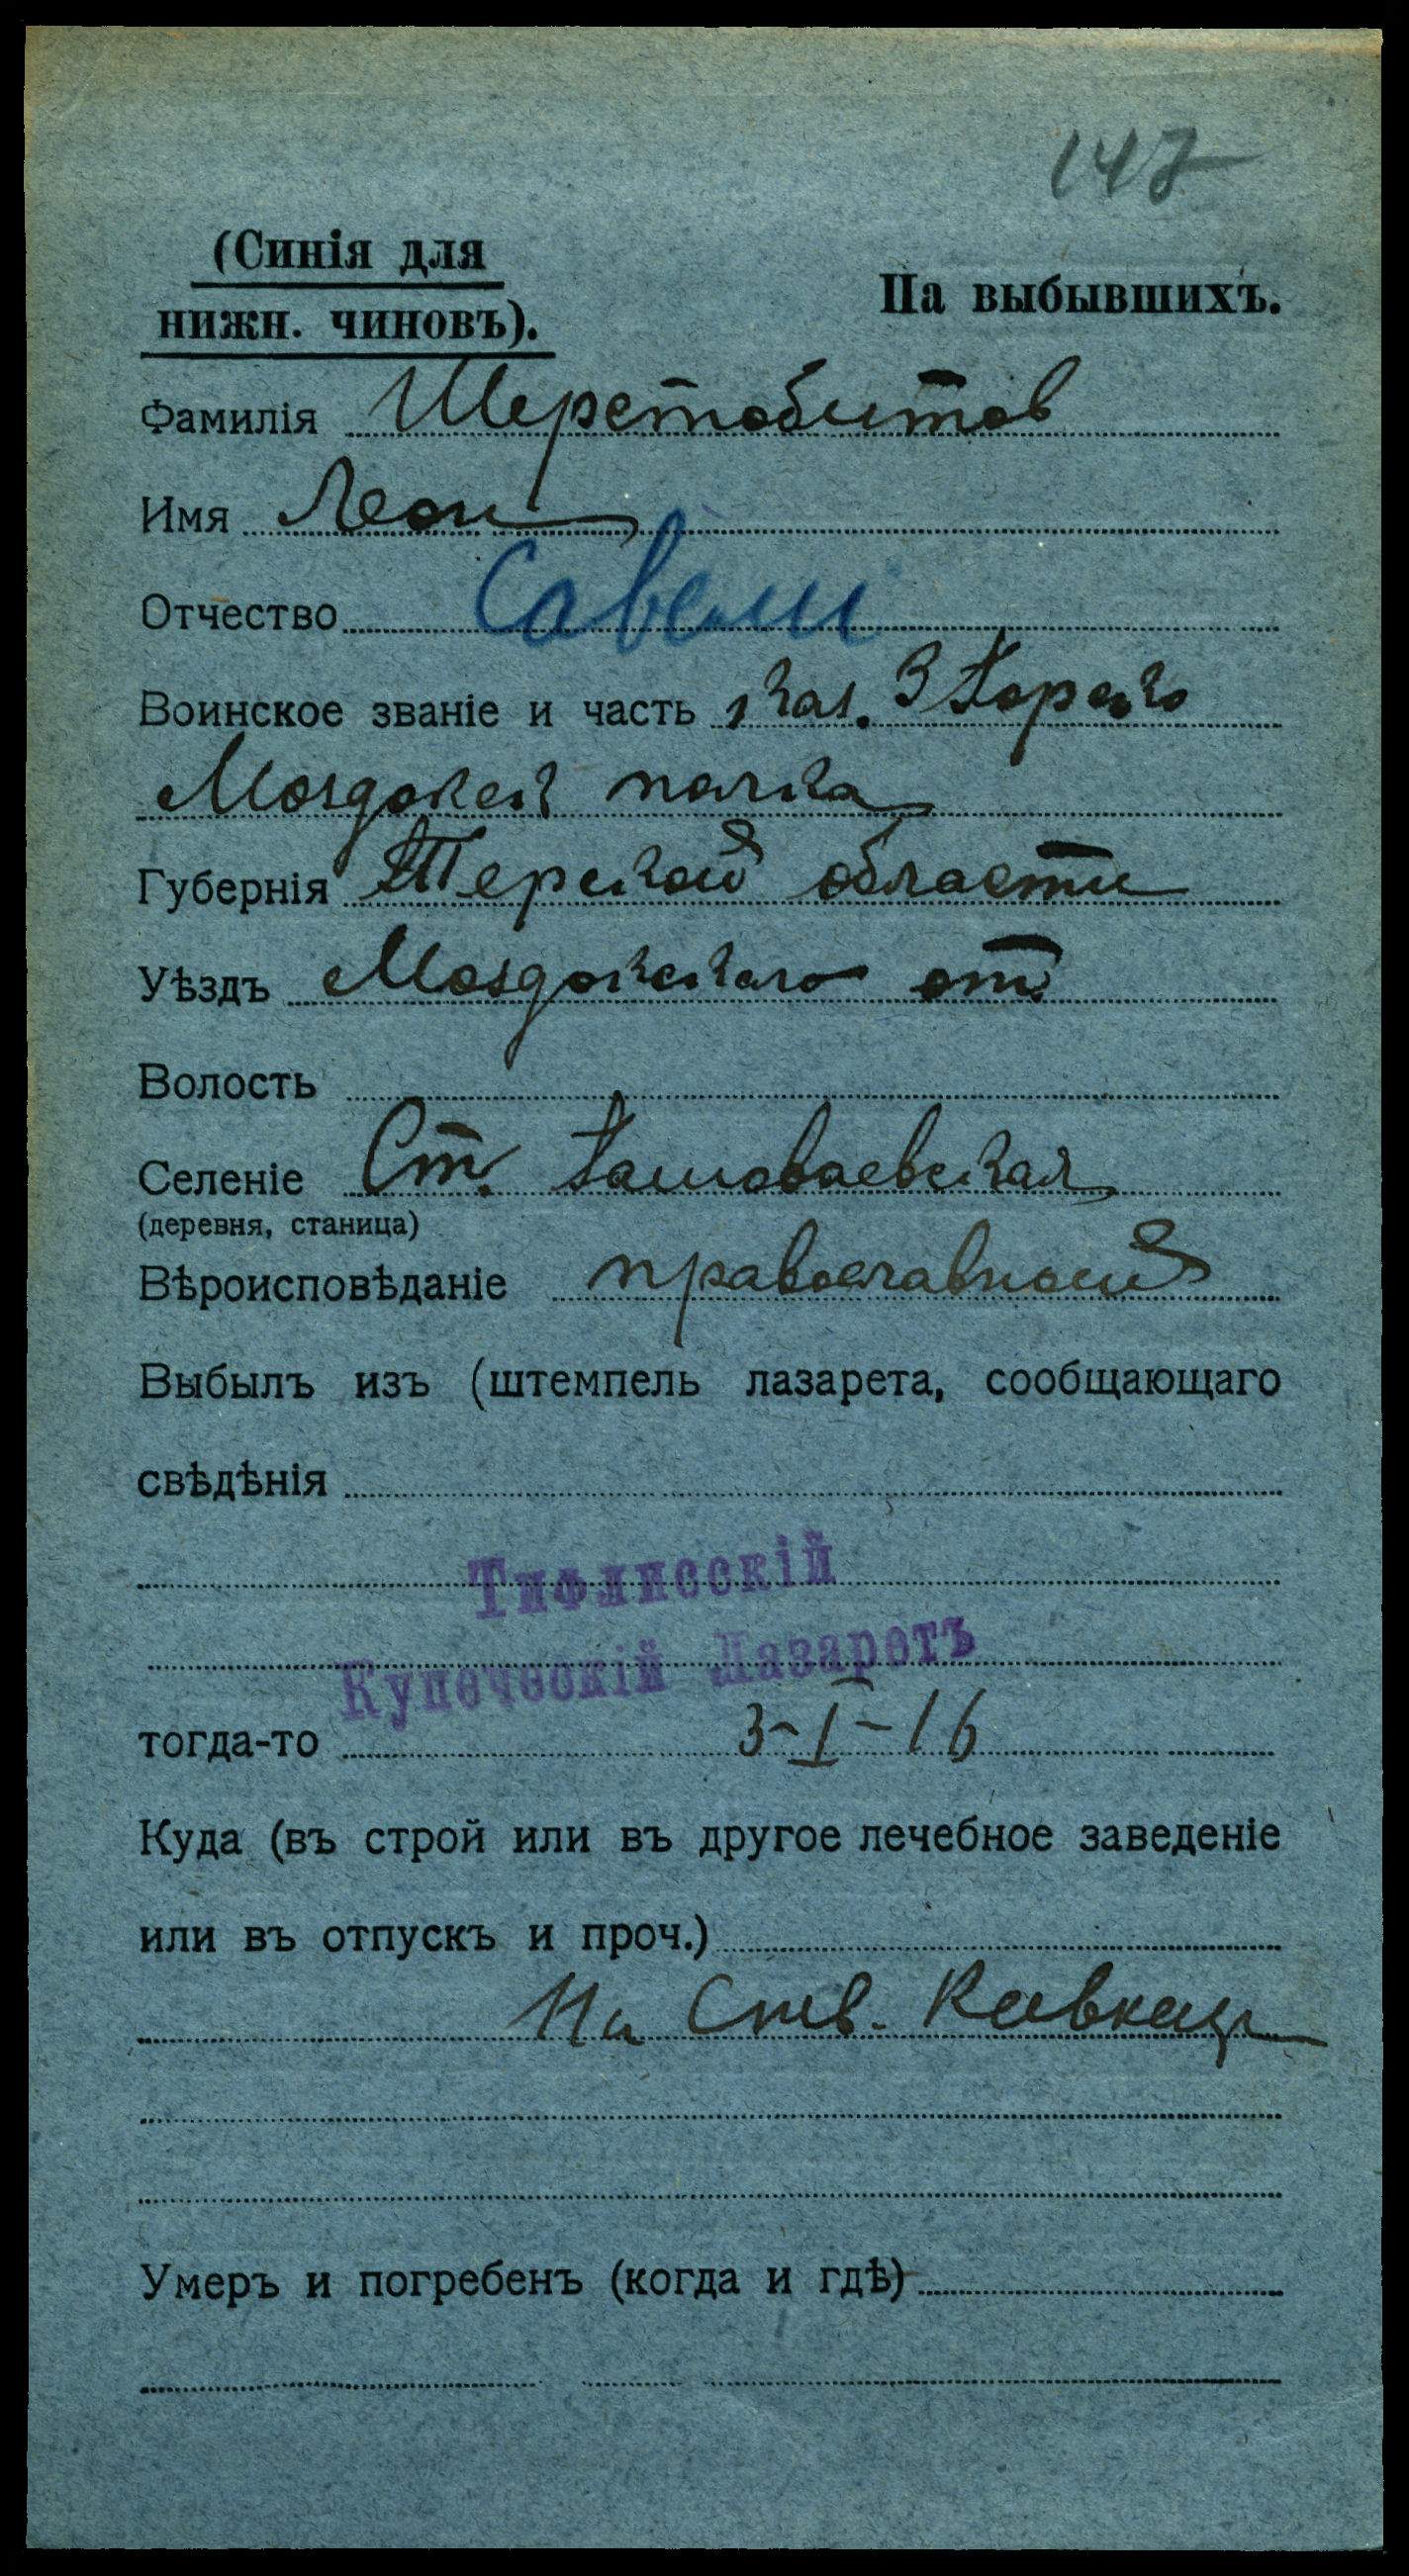 147
(Синія для
нижн. чиновъ).
На выбывшихъ.
Фамилія Шерстобитов
Имя Леон
Отчество Савели
Воинское званіе и часть каз. 3
Моздокск полка
Губернія Терской области
Уѣздъ Моздокскаго от.
Волость
Селеніе Ст.
(деревня, станица)
Вѣроисповѣданіе православной
Выбылъ изъ (штемпель лазарета, сообщающаго
свѣдѣнія
Тифлисскій
Купеческій Лазаретъ
тогда-то 3-I-16
Куда (въ строй или въ другое лечебное заведеніе
или въ отпускъ и проч.)
На Кавказ
Умеръ и погребенъ (когда и гдѣ)